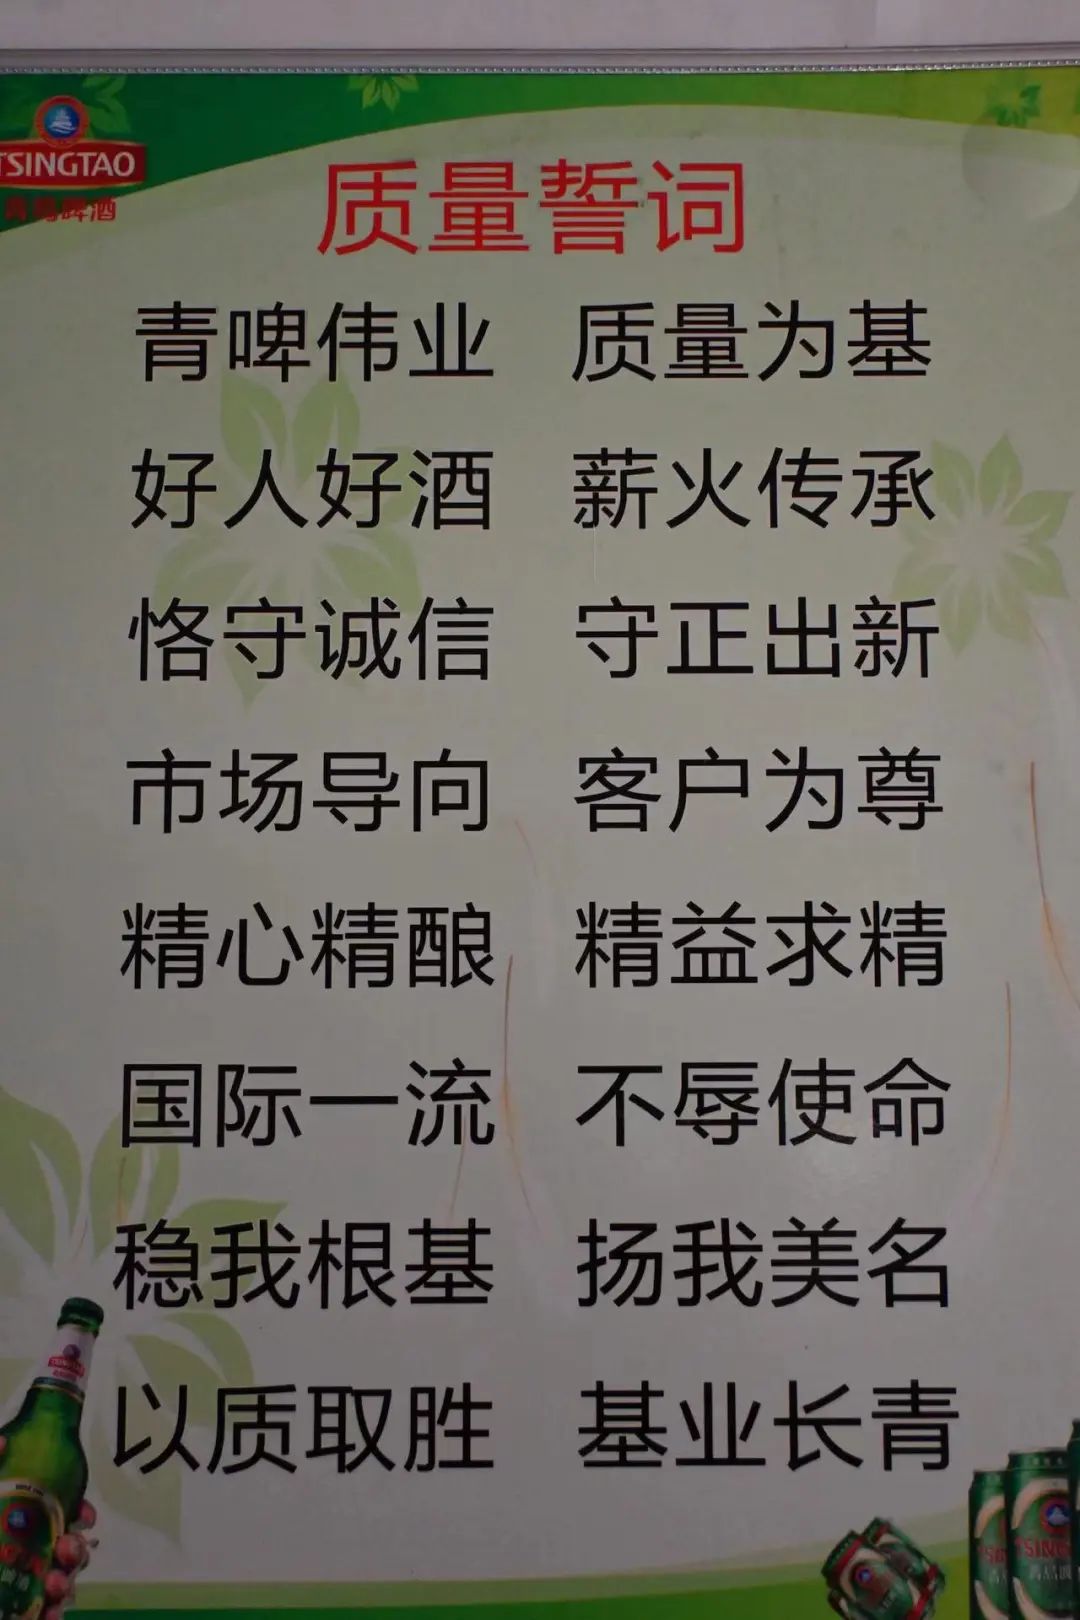 TSINGTAO
青岛啤酒
质量誓词
青啤伟业 质量为基
好人好酒 薪火传承
恪守诚信 守正出新
市场导向 客户为尊
精心精酿 精益求精
国际一流 不辱使命
稳我根基 扬我美名
以质取胜 基业长青
TSINGTAO